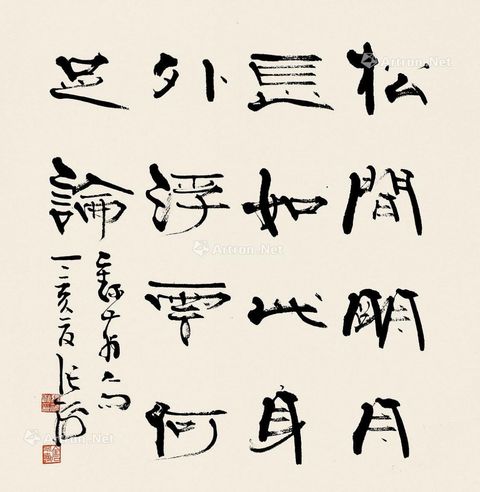 松間明月
長如此身
外浮雲何
足論
Artron.Net
Artron.Net
Artron.Net
Artron.Net